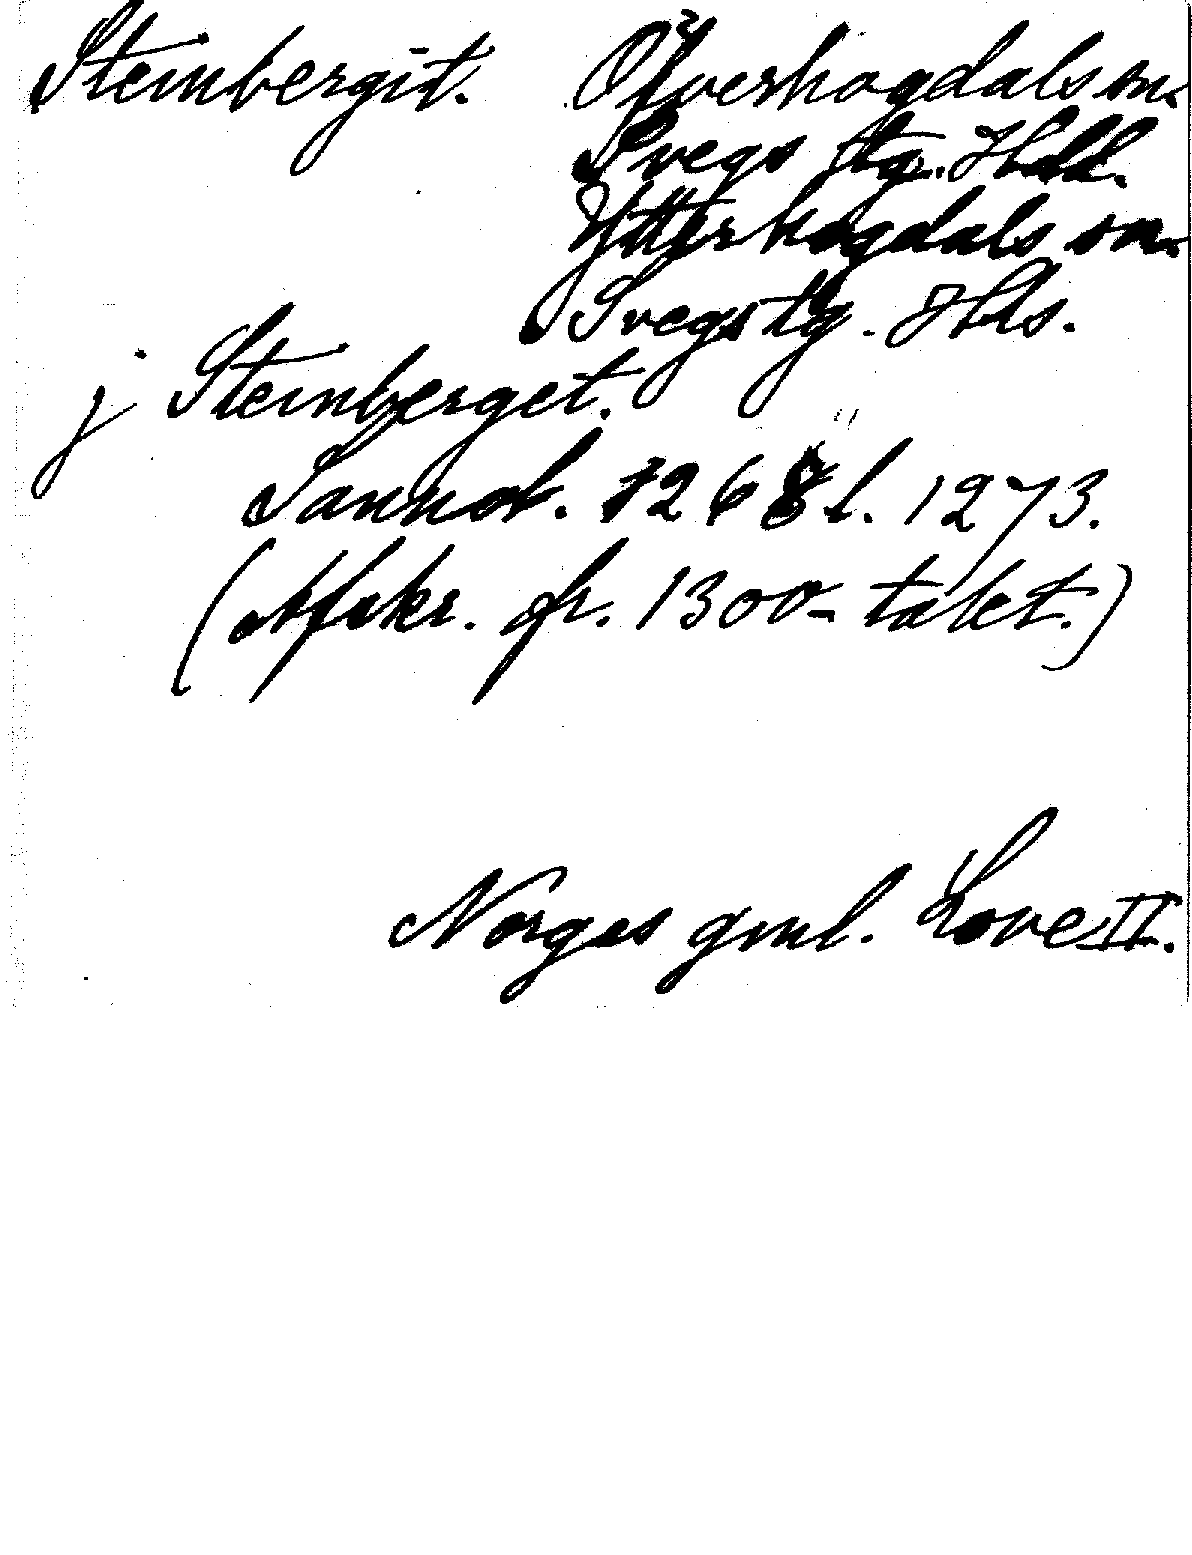 Steinbergit. Öfverhogdals sn.
Svegs tg. Hdl.
Ytterhogdals sn.
Svegs tg. Hls.
j Steinberget.
Sannol. 1268 l. 1273.
(Afskr. fr. 1300-talet.)
Norges gml. Love II.